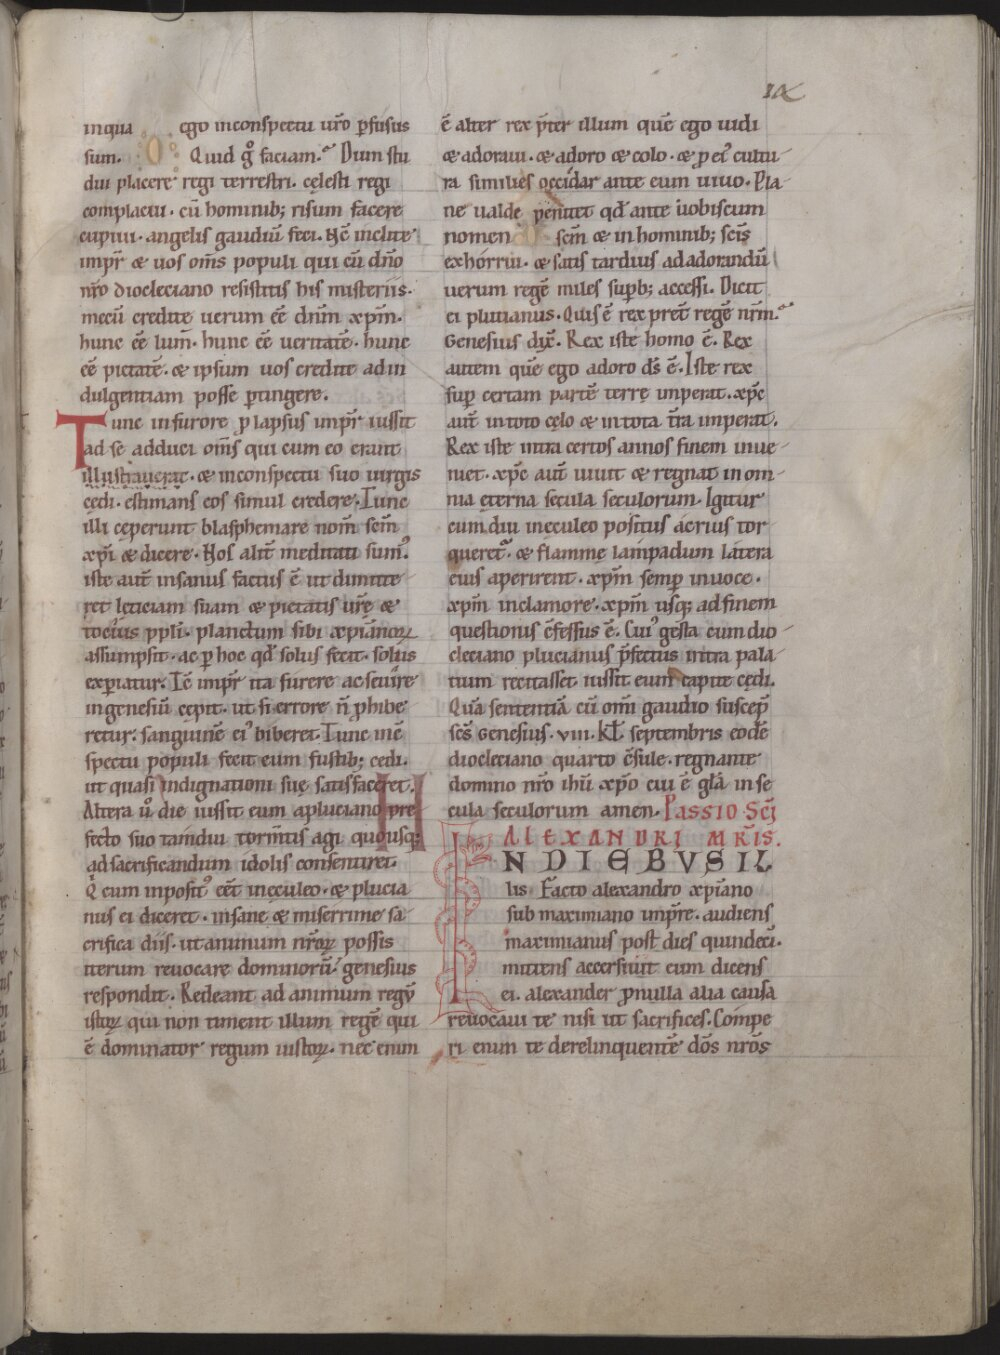 IX
in qua ego inconspectu ur̄o ꝑfusus
sum. Quid g̊ faciam. Dum stu
dui placere regi terrestri. cęlesti regi
complacui. cū hominib; risum facere
cupiui. angelis gaudiū feci. Hęc inclite
imꝑr & uos om̄s populi qui cū dn̄o
nr̄o diocleciano resistitis his misteriis.
mecū credite uerum eē dn̄m xp̄m.
hunc eē lum̄. hunc eē ueritatē. hunc
eē pietatē. & ipsum uos credite ad in
dulgentiam posse ꝑtingere.
Tunc in furore ꝓlapsus imꝑr iussit
ad se adduci om̄s qui cum eo erant
illustrauerat. & inconspectu suo uirgis
cędi. estimans eos simul credere. Tunc
illi cęperunt blasphemare nom̄ sc̄m
xp̄i & dicere. Nos alit̄ meditati sum᾽.
iste aut̄ insanus factus ē ut dimitte
ret lęticiam suam & pietatis ur̄ę &
tocius ppl̄i. planctum sibi xp̄ianoꝝ
assumpsit. ac ꝑ hoc qđ solus fecit. solus
exꝑiatur. Tc̄ imꝑr ita furere ac seuire
in genesiū cępit. ut si errore n̄ ꝓhibe
retur. sanguinē ei᾽ biberet. Tunc in c̄
spectu populi fecit eum fustib; cędi.
ut quasi indignationi suę satisfaceret.
Altera u̇ die iussit eum a pluciano pre
fecto suo tamdiu torm̄tis agi quousq;
ad sacrificandum idolis consentiret.
Q̇ cum inposit᾽ eēt in eculeo. & plucia
nus ei diceret. insane & miserrime sa
crifica diis. ut animum nr̄oꝝ possis
iterum reuocare dominorū. genesius
respondit. Redeant ad animum regū
istoꝝ qui non timent illum regē qui
ē dominator regum iustoꝝ. nec enim
ē alter rex p̄ter illum quē ego uidi
& adoraui. & adoro & colo. & ꝓ ei᾽ cultu
ra similies occidar ante eum uiuo. Pla
ne ualde penitet qđ ante ūobiscum
nomen sc̄m & in hominib; sc̄is
exhorrui. & satis tardius ad adorandū
uerum regē miles suꝑb; accessi. Dicit
ei plutianus. Quis ē rex pret̄ regē nr̄m.
Genesius dix̄. Rex iste homo ē. Rex
autem quē ego adoro ds̄ ē. Iste rex
suꝑ certam partē terrę imperat. xp̄c
aut̄ in toto cęlo & in tota tr̄a imperat.
Rex iste intra certos annos finem inue
niet. xp̄c aut̄ uiuit & regnat in om
nia ęterna secula seculorum. Igitur
cum diu in eculeo positus acrius tor
queret᾽. & flammę lampadum latera
eius aperirent. xp̄m semꝑ in uoce.
xp̄m in clamore. xp̄m usq; ad finem
questionis c̄fessus ē. Cui᾽ gesta cum dio
cleciano plucianus p̄fectus intra pala
tium recitasset iussit eum capite cędi.
Quā sententiā cū om̄i gaudio suscep̄
sc̄s Genesius. VIII. kl̄. septembris eodē
diocleciano quarto c̄sule. regnante
domino nr̄o ih̄u xp̄o cui ē gl̄a in se
cula seculorum amen. Passio Sc̄i
ALEXANDRI MR̄IS.
IN DIEBVS IL
lis. Facto alexandro xp̄iano
sub maximiano imp̄re. audiens
maximianus post dies quindeci᾽.
mittens accersiuit eum dicens
ei. alexander ꝓ nulla alia causa
reuocaui te nisi ut sacrifices. Compe
ri enim te derelinquentē dōs nr̄os